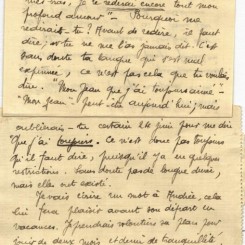 je te redirai encore tout mon
profond amour" — Pourquoi me
redirait-tu ? Avant de redire, il faut
dire, or tu ne me l'as jamais dit. C'est
sans doute ta langue qui s'est mal
exprimée, ce n'est pas cela que tu voulais
dire. "Mon Jean que j'ai toujours aimé" -
"Mon Jean" - peut-être aujourd'hui, mais
oublierais - tu certain 14 juin pour me dire
que j'ai toujours. Ce n'est donc pas toujours
qu'il faut dire, puisqu'il y a eu quelques
restrictions. Sans doute pas de longue durée,
mais elle ont existé.
Je vais écrire un mot à André, cela
lui fera plaisir avant son départ en
vacances. Je prendrais volontiers sa place pour
de deux mois et demi de tranquillité